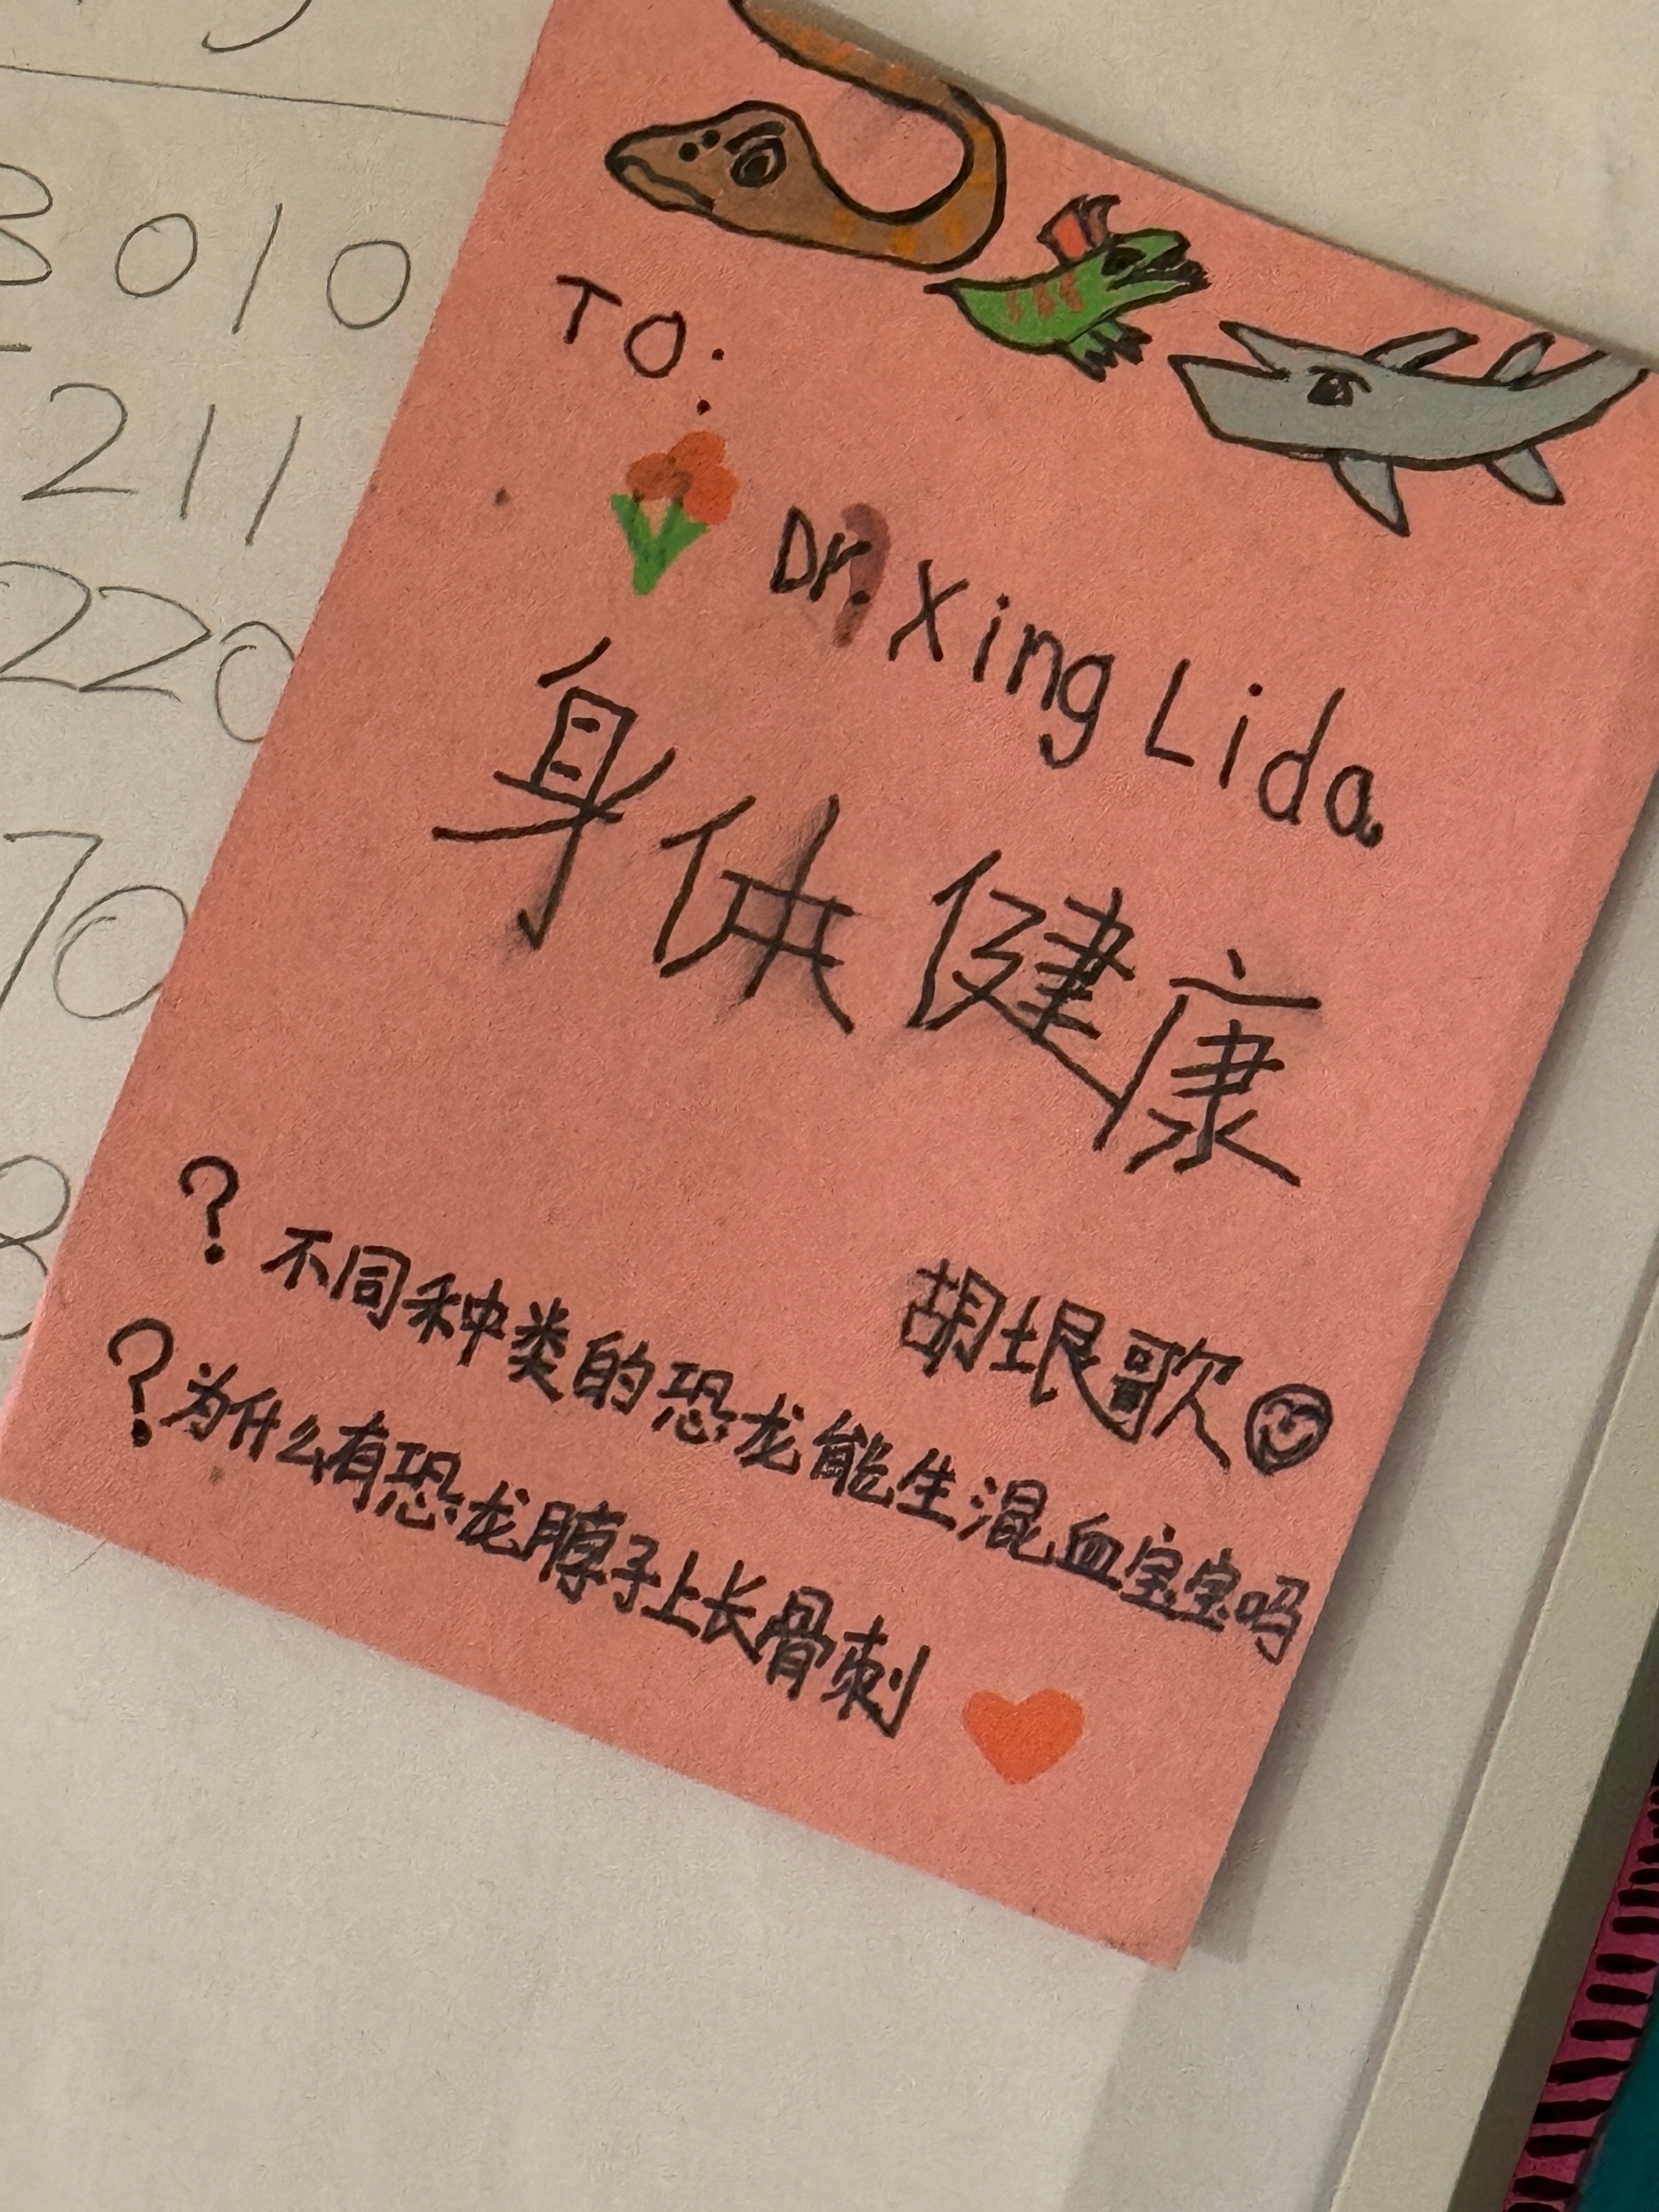 3010
211
220
70
8
TO:
Dr. Xing Lida
身体健康
胡垠歌
? 不同种类的恐龙能生混血宝宝吗
? 为什么有恐龙脖子上长骨刺